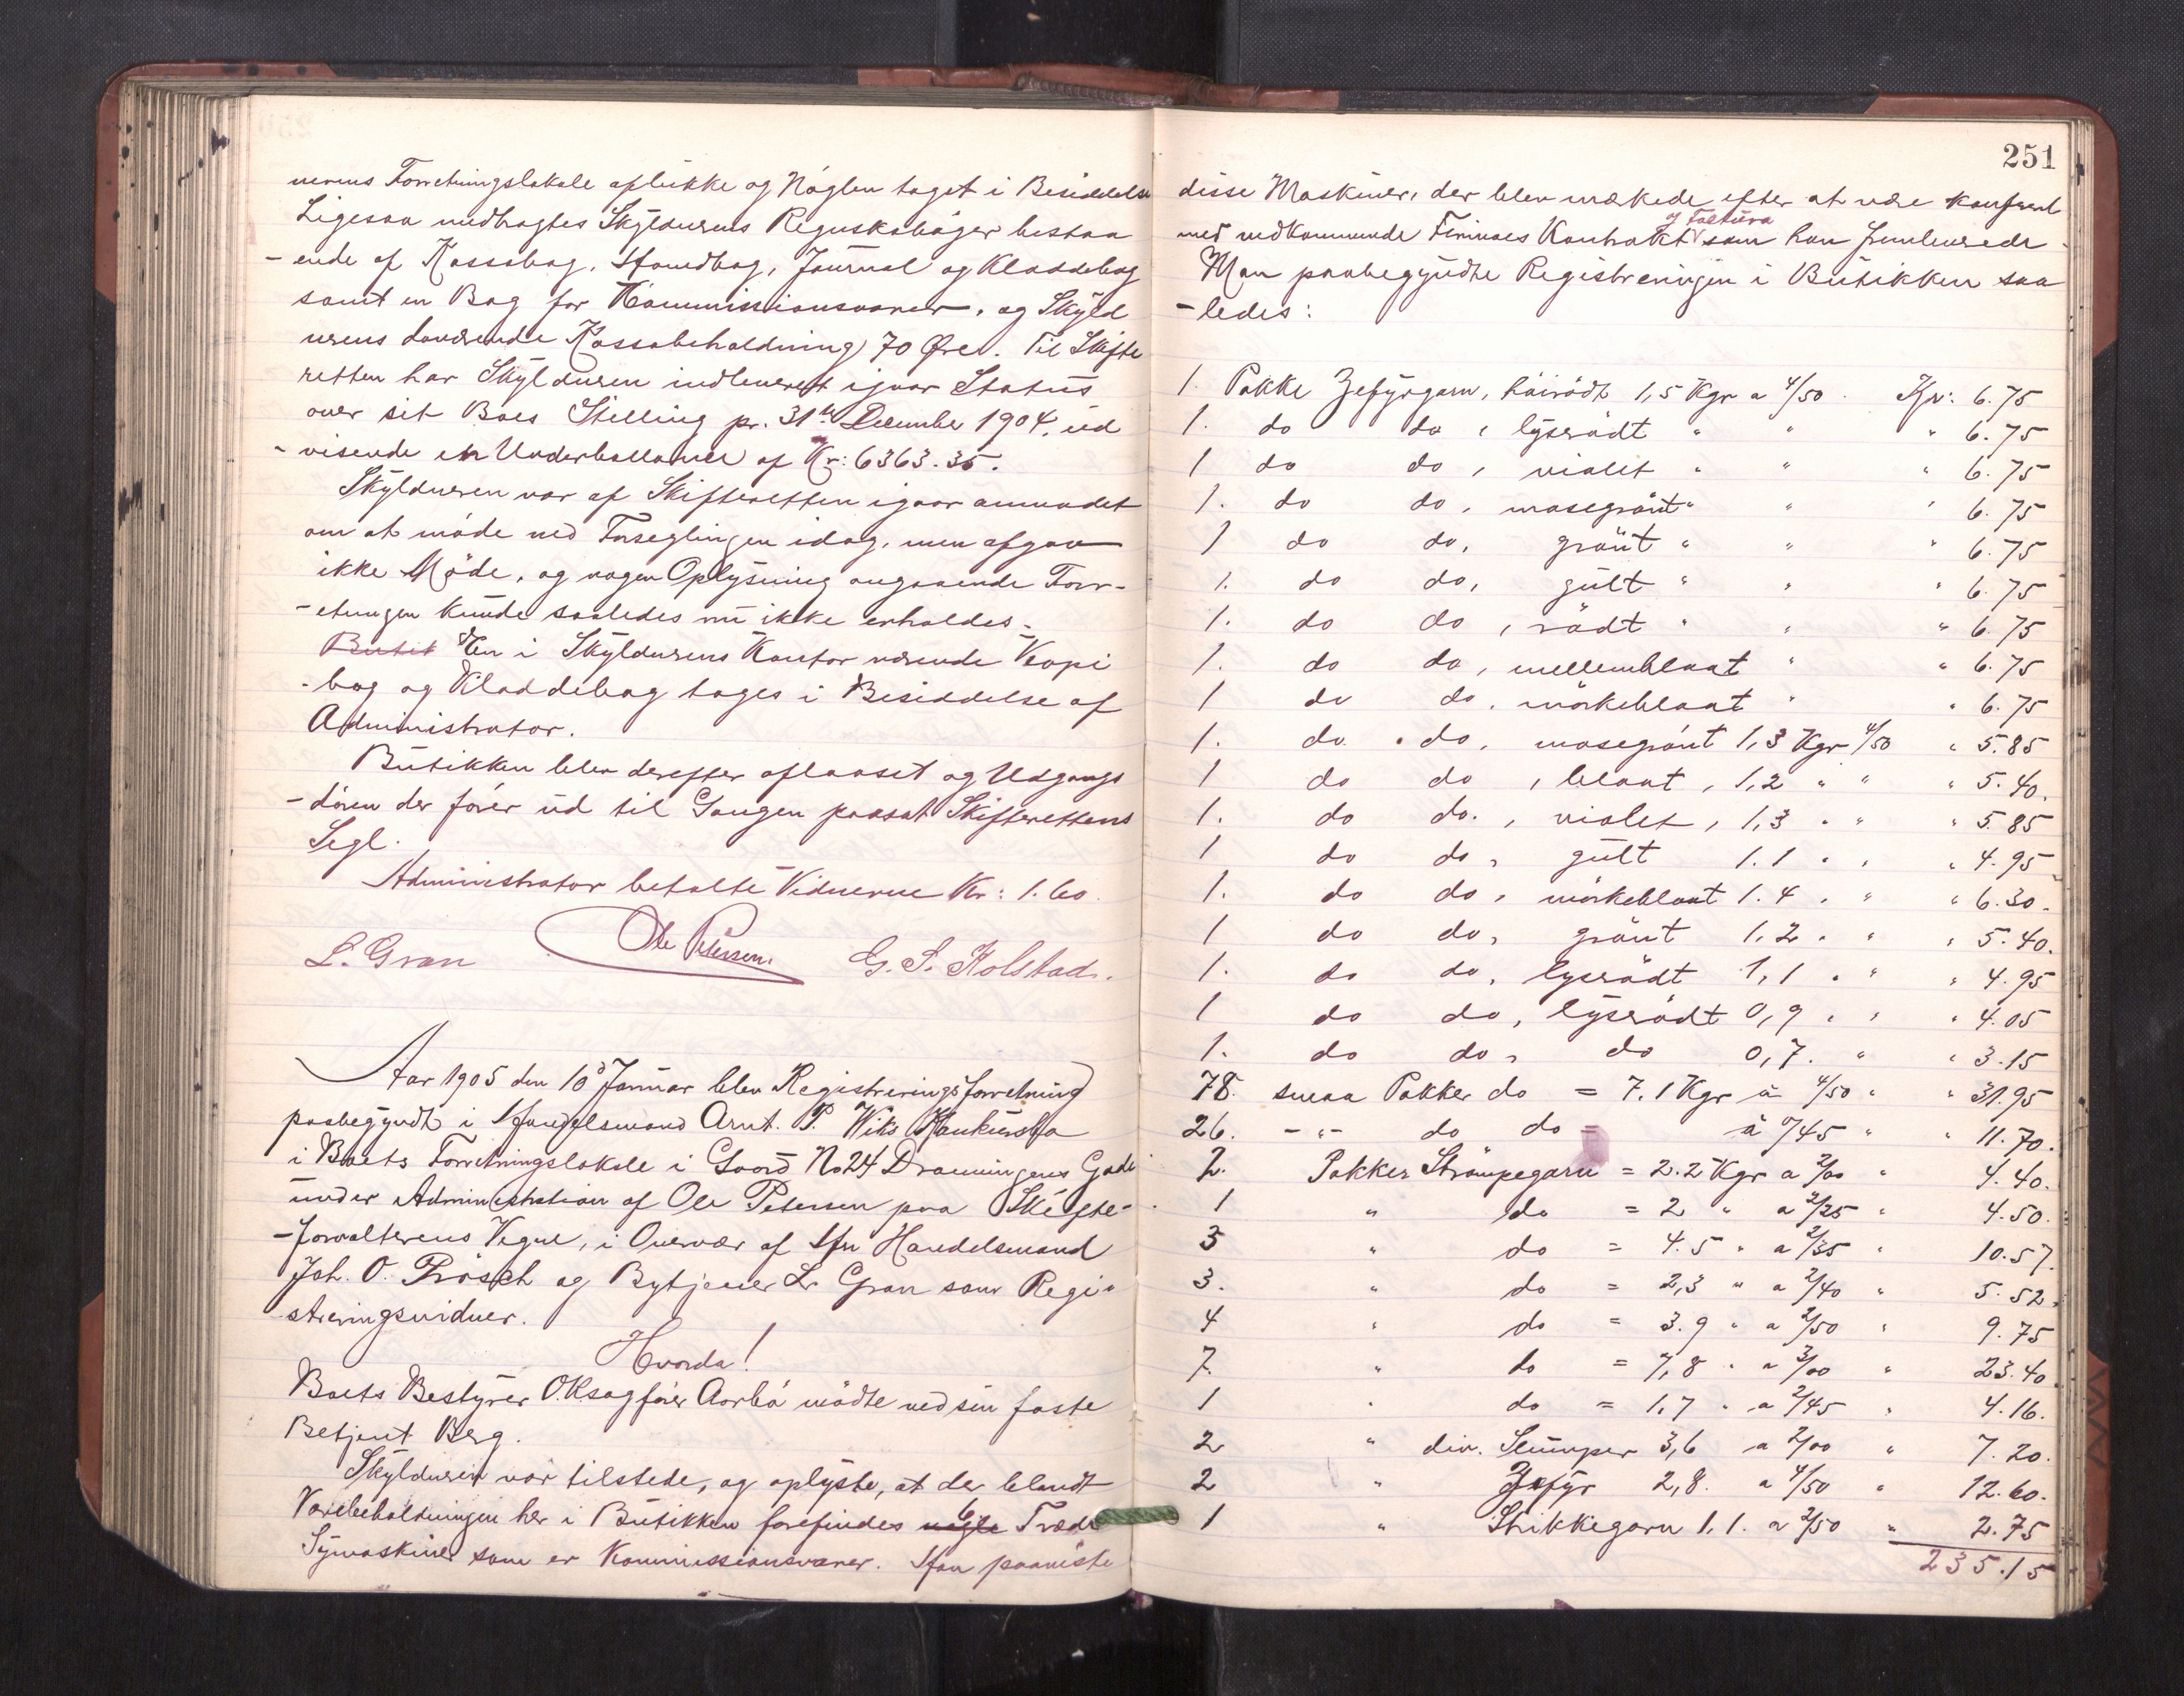 nerens Forretningslokale aflukke og Nøglen taget i Besiddelse
Ligesaa medtagtes Skyldnerens Regnskabsbøger bestaa
-ende af Kassabog, Haandbog, Journal og Kladdebog
samt en Bog for Kommissionsvarer, og Skyld
nerens daværende Kassabeholdning 70 Øre. Til Skifte
retten har Skyldneren indleveret igaar Status
over sit Boes Stilling pr. 31te December 1904, ud
-visende en Underballance af Kr: 6363.35.
Skyldneren var af Skifteretten igaar anmodet
om at møde ved Forseglingen idag, men afgav
ikke Møde, og nogen Oplysning angaaende Forr-
-etningen kunde saaledes nu ikke erholdes.
Butik En i Skyldnerens Kontor værende Kopi
-bog og Kladdebog tages i Besiddelse af
Administrator.
Butikken blev derefter aflaaset og Udgangs
-døren der fører ud til Gangen paasat Skifterettens
Segl.
Administrator betalte Vidnerne Kr: 1.60.
L. Gran Ole Petersen. G. S. Kolstad.
Aar 1905 den 10de Januar blev Registreringsforretning
paabegyndt i Handelsmand Arnt. P. Wiks Konkursbo
i Boets Forretningslokale i Gaard No 24 Dronningens Gade
under Administration af Ole Petersen paa Skifte-
-forvalterens Vegne, i Overvær af Hrr Handelsmand
Joh. O. Prøsch og Bytjener L. Gran som Regi-
streringsvidner.
Hvorda!
Boets Bestyrer O.Rsagfører Aarbø mødte ved sin faste
Betjent Berg.
Skyldneren var tilstede, og oplyste, at der blandt
Varebeholdningen her i Butikken forefindes nogle 6 Træde
Symaskiner som er Kommissionsvarer. Han paaviste
251
disse Maskiner, der blev mærkede efter at være konfereret
og Factura
med vedkommende Firmaes Kontrakt som han fremleverede.
Man paabegyndte Registreringen i Butikken saa
-ledes:
1. Pakke Zefyrgarn, høirødt 1,5 Kgr a 4/50. Kr: 6.75
1. do do, lyserødt " " " 6.75
1 do do, violet " " " 6.75
1. do do, mosegrønt " " " 6.75
1 do do, grønt " " " 6.75
1. do do, gult " " " 6.75
1. do do, rødt " " " 6.75
1. do do, mellemblaat " " 6.75
1 do do, mørkeblaat " " 6.75
1. do. do, mosegrønt 1,3 Kgr 4/50 " 5.85
1 do do, blaat, 1,2 " " " 5.40.
1. do do., violet, 1,3 " " " 5.85
1 do do, gult 1.1 " " " 4.95
1. do do, mørkeblaat 1.4 " " " 6.30.
1 do do, grønt 1.2 " " " 5.40.
1. do do, lyserødt 1,1 " " " 4.95
1 do do, lyserødt 0,9 " " " 4.05
1. do do, do 0,7. " " 3.15
78. smaa Pakker do = 7.1 Kgr à 4/50 " " 31.95
26. -"- do do = à 0/45 " " 11.70.
2. Pakker Strømpegarn = 2.2 Kgr a 2/00 " 4.40.
1 " do = 2 " a 2/25 " 4.50.
5 " do = 4.5 " a 2/35 " 10.57.
3. " do = 2,3 " a 2/40 " 5.52.
4 " do = 3.9 " a 2/50 " 9.75
7. " do = 7,8 " a 3/00 " 23.40
1 " do = 1.7 " a 2/45 " 4.16.
2 " div. Slumper 3,6 a 2/00 " 7.20.
2 " Zefyr 2,8. a 4/50 " 12.60.
1 " Strikkegarn 1,1. a 2/50 " 2.75
235.15